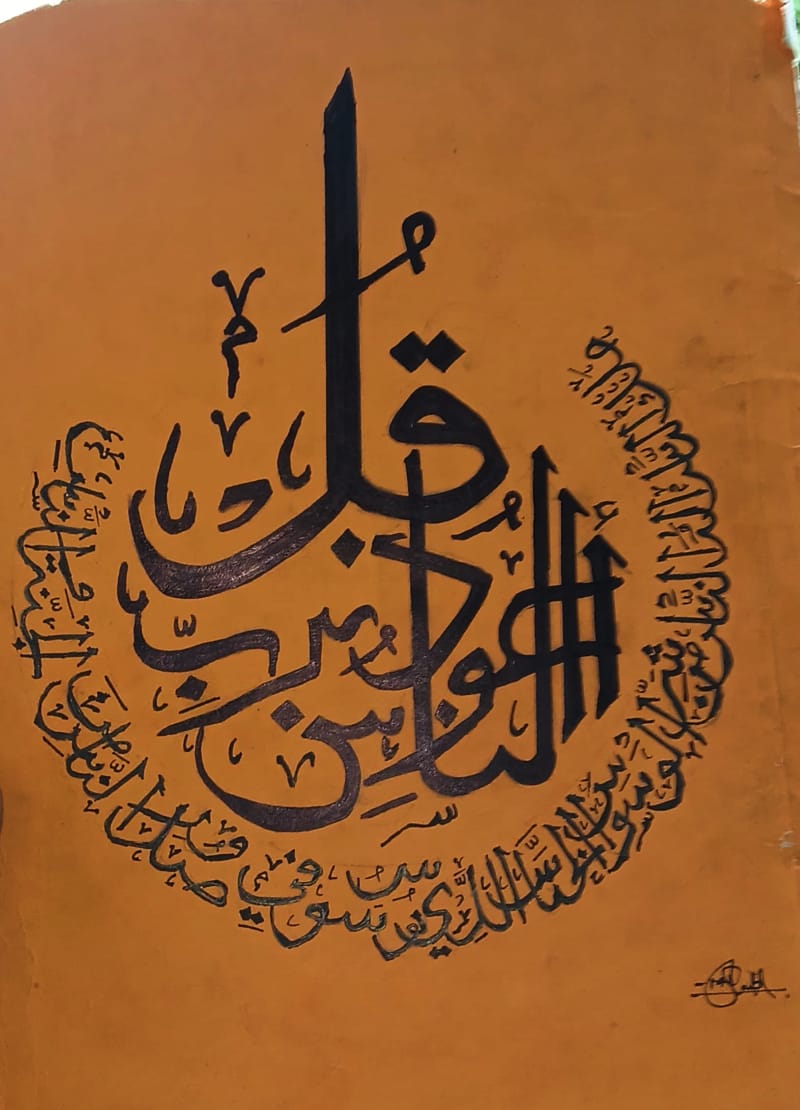 قُلْ أَعُوذُ بِرَبِّ النَّاسِ
مَلِكِ النَّاسِ إِلَٰهِ النَّاسِ مِن شَرِّ الْوَسْوَاسِ الْخَنَّاسِ الَّذِي يُوَسْوِسُ فِي صُدُورِ النَّاسِ مِنَ الْجِنَّةِ وَالنَّاسِ